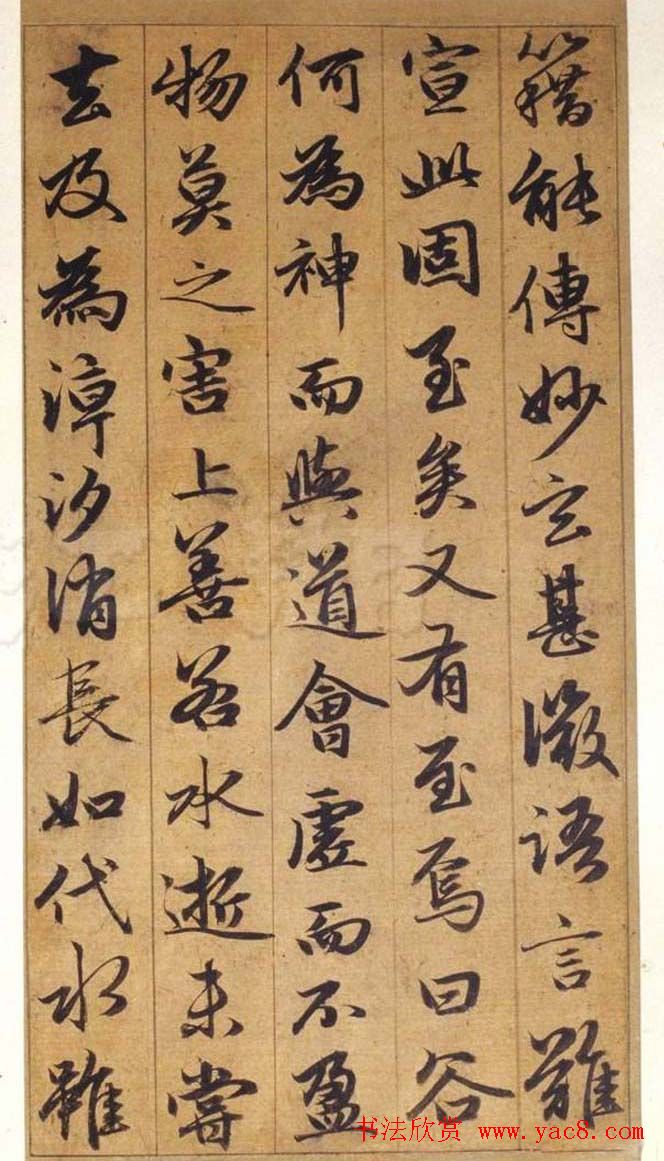 籍能傳妙玄甚微語言難
宣此固至矣又有至焉曰谷
何為神而與道會虛而不盈
物莫之害上善若水逝未嘗
去及為漳汐消長如代水雖
书法欣赏 www.yac8.com